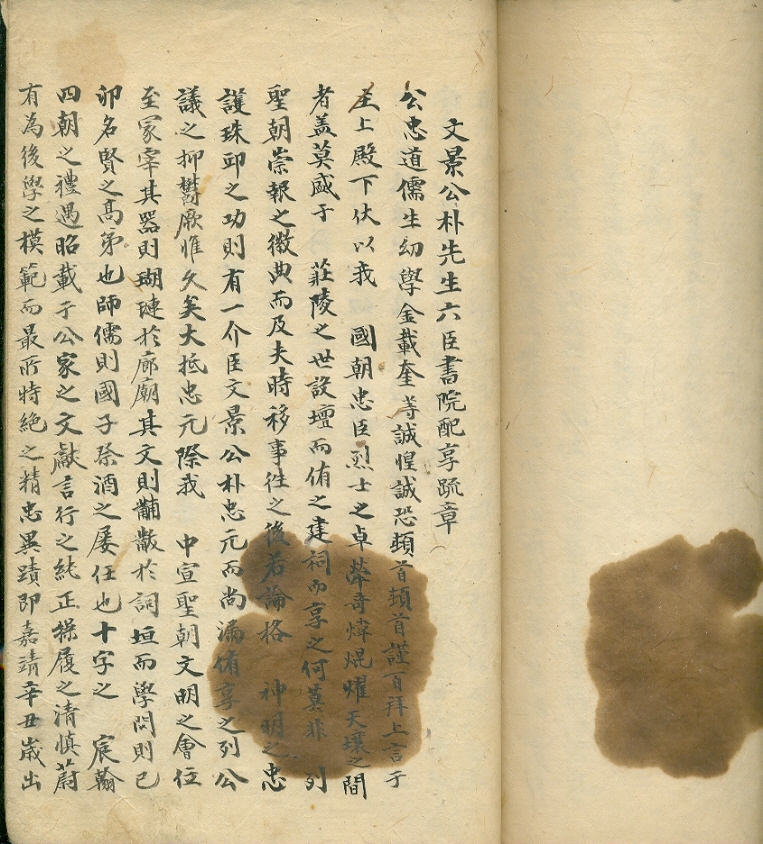 文景公朴先生六臣書院配享疏章
公忠道儒生幼學金載奎等誠惶誠恐頓首頓首謹百拜上言于
主上殿下伏以我 國朝忠臣烈士之卓犖奇煒焜耀天壤之間
者盖莫盛于 莊陵之世設壇而侑之建祠而享之何莫非 列
聖朝崇報之徽典而及夫時移事徃之後若論格 神明之忠
護珠邱之功則有一介臣文景公朴忠元而尚漏侑享之列公
議之抑欝厥惟久矣大抵忠元際我 中宣聖朝文明之會位
至冢宰其器則瑚璉於廊廟其文則黼黻於詞垣而學問則已
卯名賢之高弟也師儒則國子祭酒之屡任也十字之 宸翰
四朝之禮遇昭載于公家之文獻言行之純正操履之清慎蔚
有為後學之模範而最所特絶之精忠異蹟即嘉靖辛丑歲出